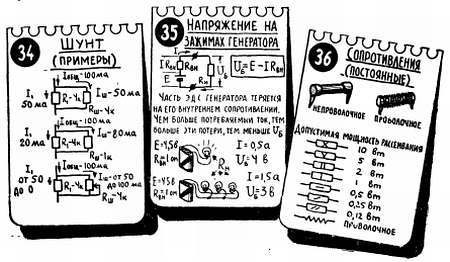 34
ШУНТ
(ПРИМЕРЫ)
Iобщ-100ма
I₁
50 ма
R₁-4к
Iш-50ма
Rш-4к
Iобщ-100ма
I₁
20ма
R₁-4к
Iш-80ма
Rш-1к
Iобщ-100ма
I₁
от 50
до 0
R₁-4к
Iш-от 50
до 100ма
Rш-4к
35
НАПРЯЖЕНИЕ НА
ЗАЖИМАХ ГЕНЕРАТОРА
I
IRвн
Rвн
E
Uб
Rн
Uб=E-IRвн
ЧАСТЬ ЭДС ГЕНЕРАТОРА ТЕРЯЕТСЯ
НА ЕГО ВНУТРЕННЕМ СОПРОТИВЛЕНИИ.
ЧЕМ БОЛЬШЕ ПОТРЕБЛЯЕМЫЙ ТОК, ТЕМ
БОЛЬШЕ ЭТИ ПОТЕРИ, ТЕМ МЕНЬШЕ Uб
E=4,5в
Rвн=1ом
Rн
I=0,5а
Uб=4В
E=4,5в
Rвн=1ом
I=1,5а
Uб=3В
36
СОПРОТИВЛЕНИЯ
(ПОСТОЯННЫЕ)
НЕПРОВОЛОЧНОЕ
ПРОВОЛОЧНОЕ
ДОПУСТИМАЯ МОЩНОСТЬ РАССЕИВАНИЯ
10 Вт
5 Вт
2 Вт
1 Вт
0,5 Вт
0,25 Вт
0,12 Вт
ПРОВОЛОЧНОЕ